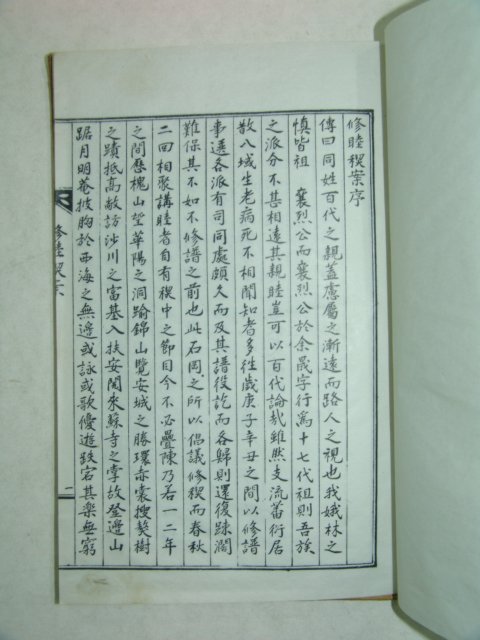 修睦稧案序
傳曰同姓百代之親蓋慮屬之漸遠而路人之視也我娥林之
愼皆祖 襄烈公而襄烈公於余晟字行爲十七代祖則吾族
之派分不甚相遠其親睦豈可以百代論哉雖然支流蕃衍居
散八域生老病死不相聞知者多徃歲庚子辛丑之間以修譜
事選各派有司同處頗久而及其譜役訖而各歸則還復踈濶
難保其不如不修譜之前也此石岡之所以倡議修稧而春秋
二回相聚講睦者自有稧中之節目今不必疊陳乃若一二年
之間歷槐山望華陽之洞踰錦山覽安城之勝環赤裳搜獒樹
之蹟抵高敞訪沙川之富基入扶安聞來蘇寺之
故登邊山
踞月明菴披胸於西海之無邊或詠或歌優遊跌宕其樂無窮
修睦稧案
二